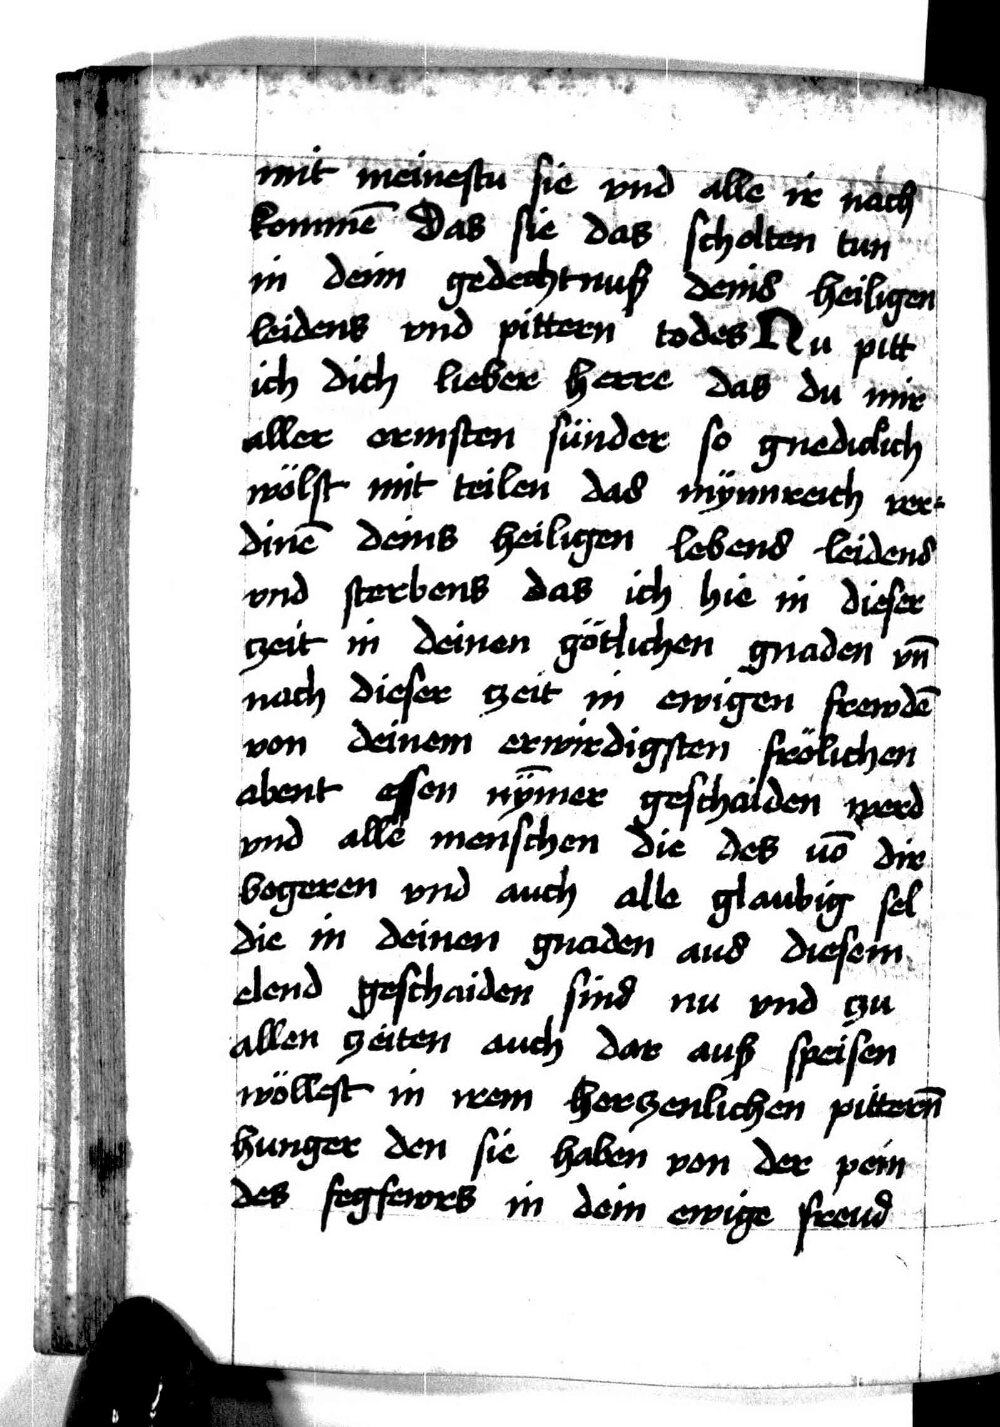 mit meinestu sie vnd alle ir nach
kommē Das sie das scholten tun
in deim gedechtnuß deins heiligen
leidens vnd pittern todes Nu pitt
ich dich lieber herre das du mir
aller ermsten sünder so gnediclich
wölst mit teilen das mÿnnreich ver-
dinē deins heiligen lebens leidens
vnd sterbens das ich hie in dieser
zeit in deinen götlichen gnaden vn̄
nach dieser zeit in ewigen frewdē
von deinem erwirdigsten frölichen
abent essen nȳmer geschaiden werd
vnd alle menschen die des vō dir
begeren vnd auch alle glaubig sel
die in deinen gnaden aus diesem
elend geschaiden sind nu vnd zu
allen zeiten auch dar auß speisen
wöllest in irem herzenlichen pittern̄
hunger den sie haben von der pein
des fegfewrs in dein ewige freud